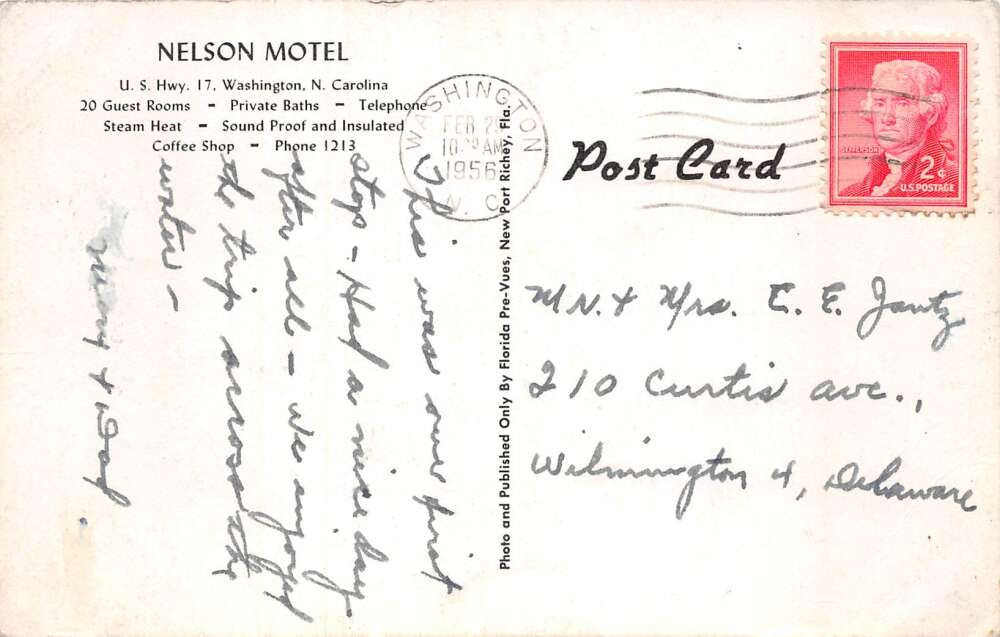 NELSON MOTEL
U. S. Hwy. 17, Washington, N. Carolina
20 Guest Rooms - Private Baths - Telephone
Steam Heat - Sound Proof and Insulated
Coffee Shop - Phone 1213
WASHINGTON
FEB 25
AM
1956
N. C.
Post Card
JEFFERSON
2¢
U.S. POSTAGE
This was our first
stop - Had a nice day
after all - We enjoyed
the trip across the
water -
Mom & Dad.
Photo and Published Only By Florida Pre-Vues, New Port Richey, Fla.
Mr. & Mrs. E. E. Jantz
210 Curtis ave.,
Wilmington 4, Delaware